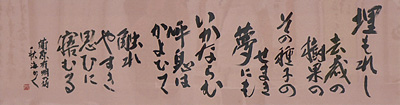 埋もれし
去歳の
樹果の
その種子の
せまき
夢にも
いかならむ
呼息は
かよひて
触れ
やすき
思ひに
寤むる
蒲原有明詩
秋海かく